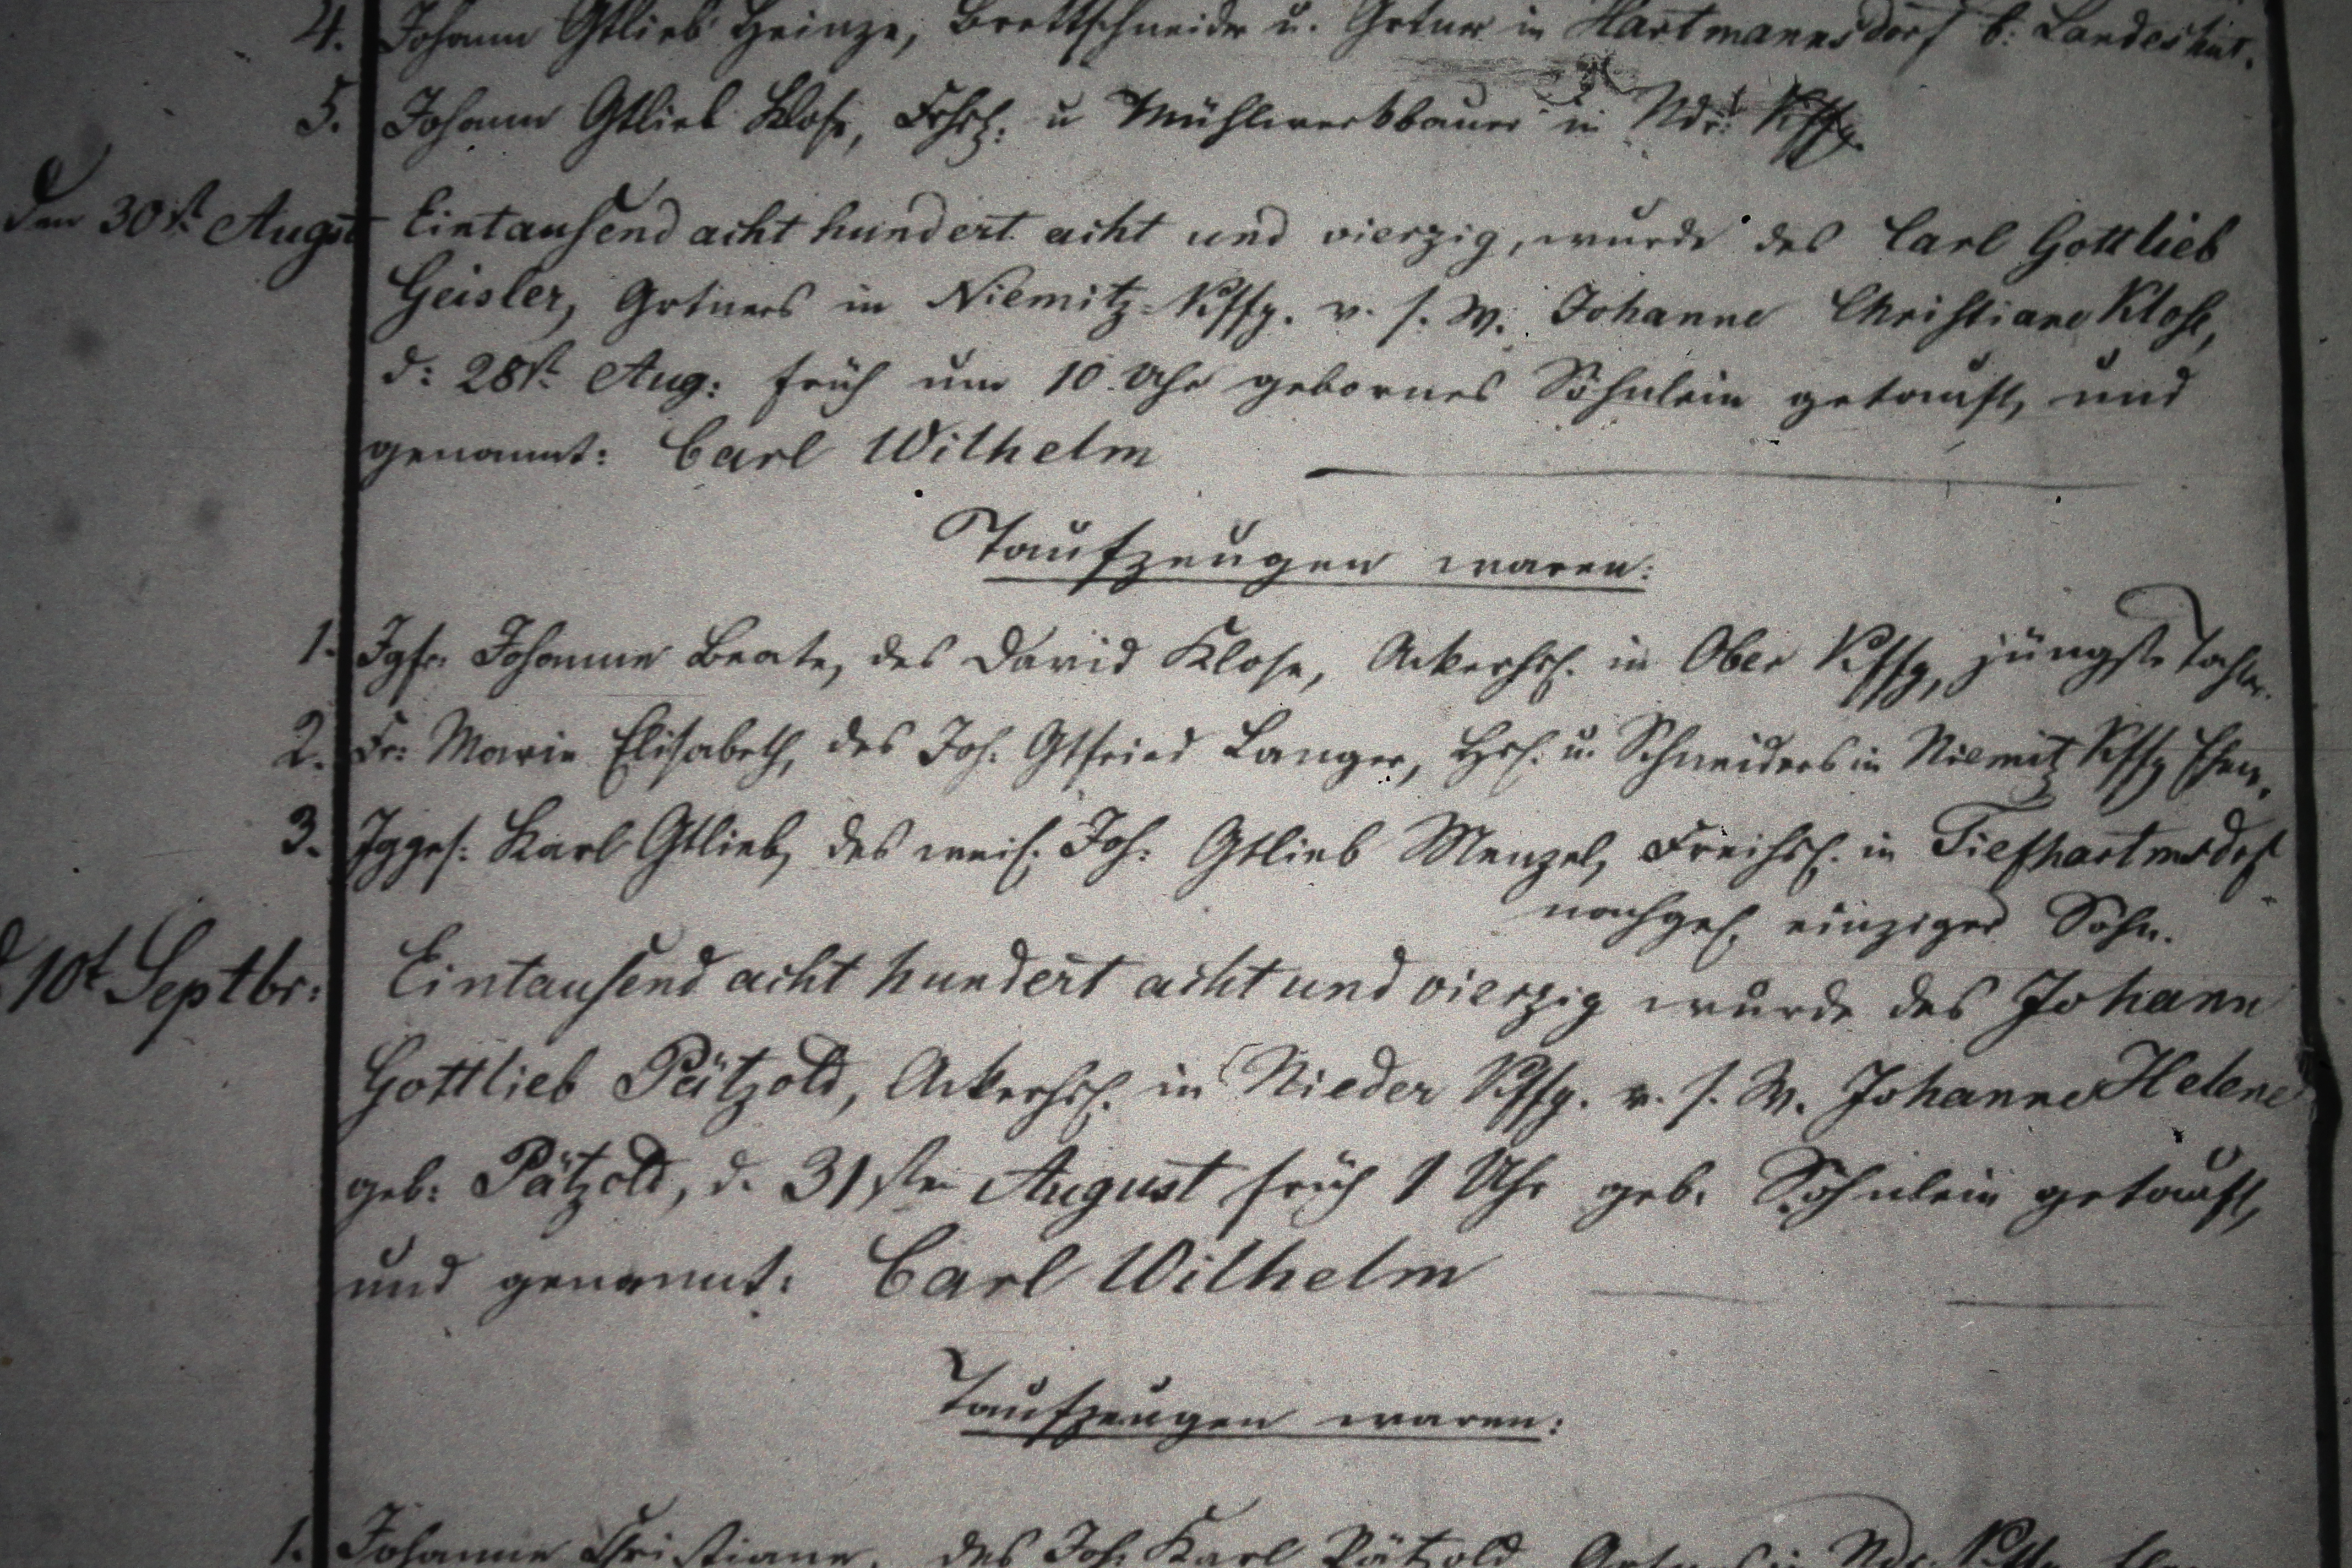 4. Johann Gtlieb Heinze, Brettschneider u. Grtner in Hartmannsdorf b: Landeshut.
5. Johann Gtlieb Klose, Frhsl: u Mühlwerkbauer in Ndr: Kffg.
den 30st August Eintausend acht hundert acht und vierzig, wurde des Carl Gottlieb
Geisler, Grtners in Niemitz-Kffg. v. s. W. Johanne Christiane Klose,
d: 28st Aug: früh um 10 Uhr gebornes Söhnlein getauft, und
genannt: Carl Wilhelm
Taufzeugen waren:
1. Jgfr. Johanne Beate, des David Klose, Ackerhsl. in Ober Kffg, jüngste Tochter.
2. Fr: Marie Elisabeth, des Joh. Gtfried Langer, Hsl. u. Schneiders in Niemitz Kffg Ehew.
3. Jgges: Karl Gtlieb, des weil. Joh: Gtlieb Menzel, Freihsl. in Tiefhartmsdrf
nachgel. einziger Sohn.
d. 10t Septbr: Eintausend acht hundert acht und vierzig wurde des Johann
Gottlieb Pätzold, Ackerhsl. in Nieder Kffg. v. s. W. Johanne Helene
geb: Pätzold, d. 31sten August früh 1 Uhr geb. Söhnlein getauft,
und genannt: Carl Wilhelm
Taufzeugen waren:
1. Johanne Christiane, des Joh. Karl Pätzold